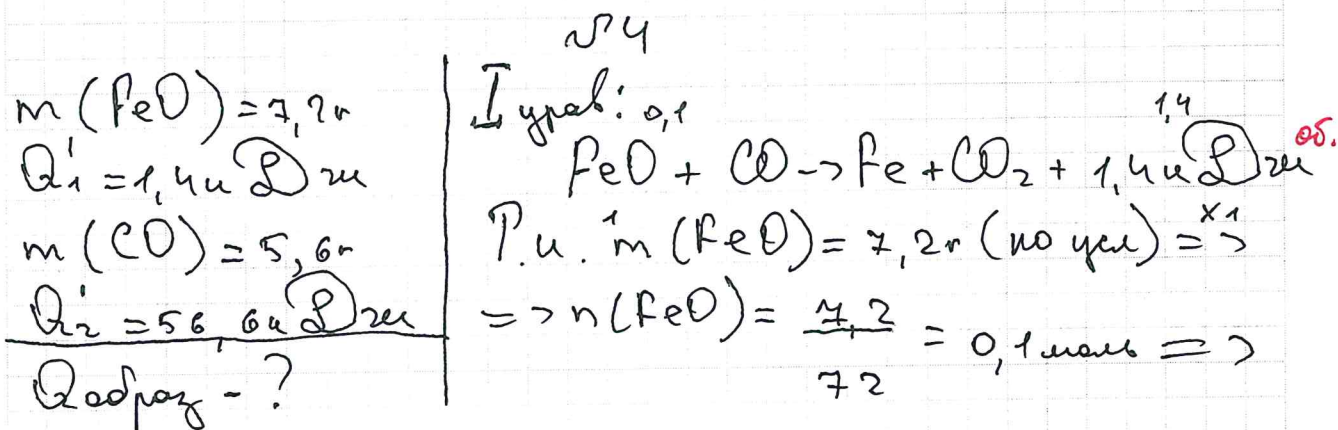 №4
m(FeO)=7,2г
Q1=1,4кДж
m(CO)=5,6г
Q2=56,6кДж
Qобраз-?
I урав:
0,1 1,4 об.
FeO + CO -> Fe + CO2 + 1,4кДж
1 x1
Т.к. m(FeO)=7,2г (по усл) =>
=> n(FeO)= 7,2/72 = 0,1 моль =>